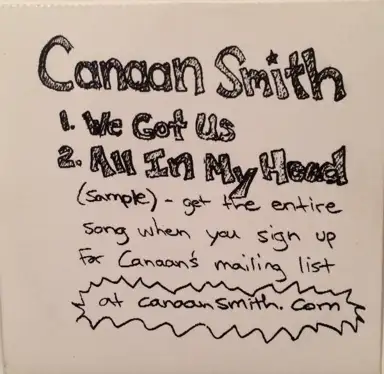 Canaan Smith
1. We Got Us
2. All In My Head
(Sample) - get the entire
song when you sign up
for Canaan's mailing list
at canaansmith.com